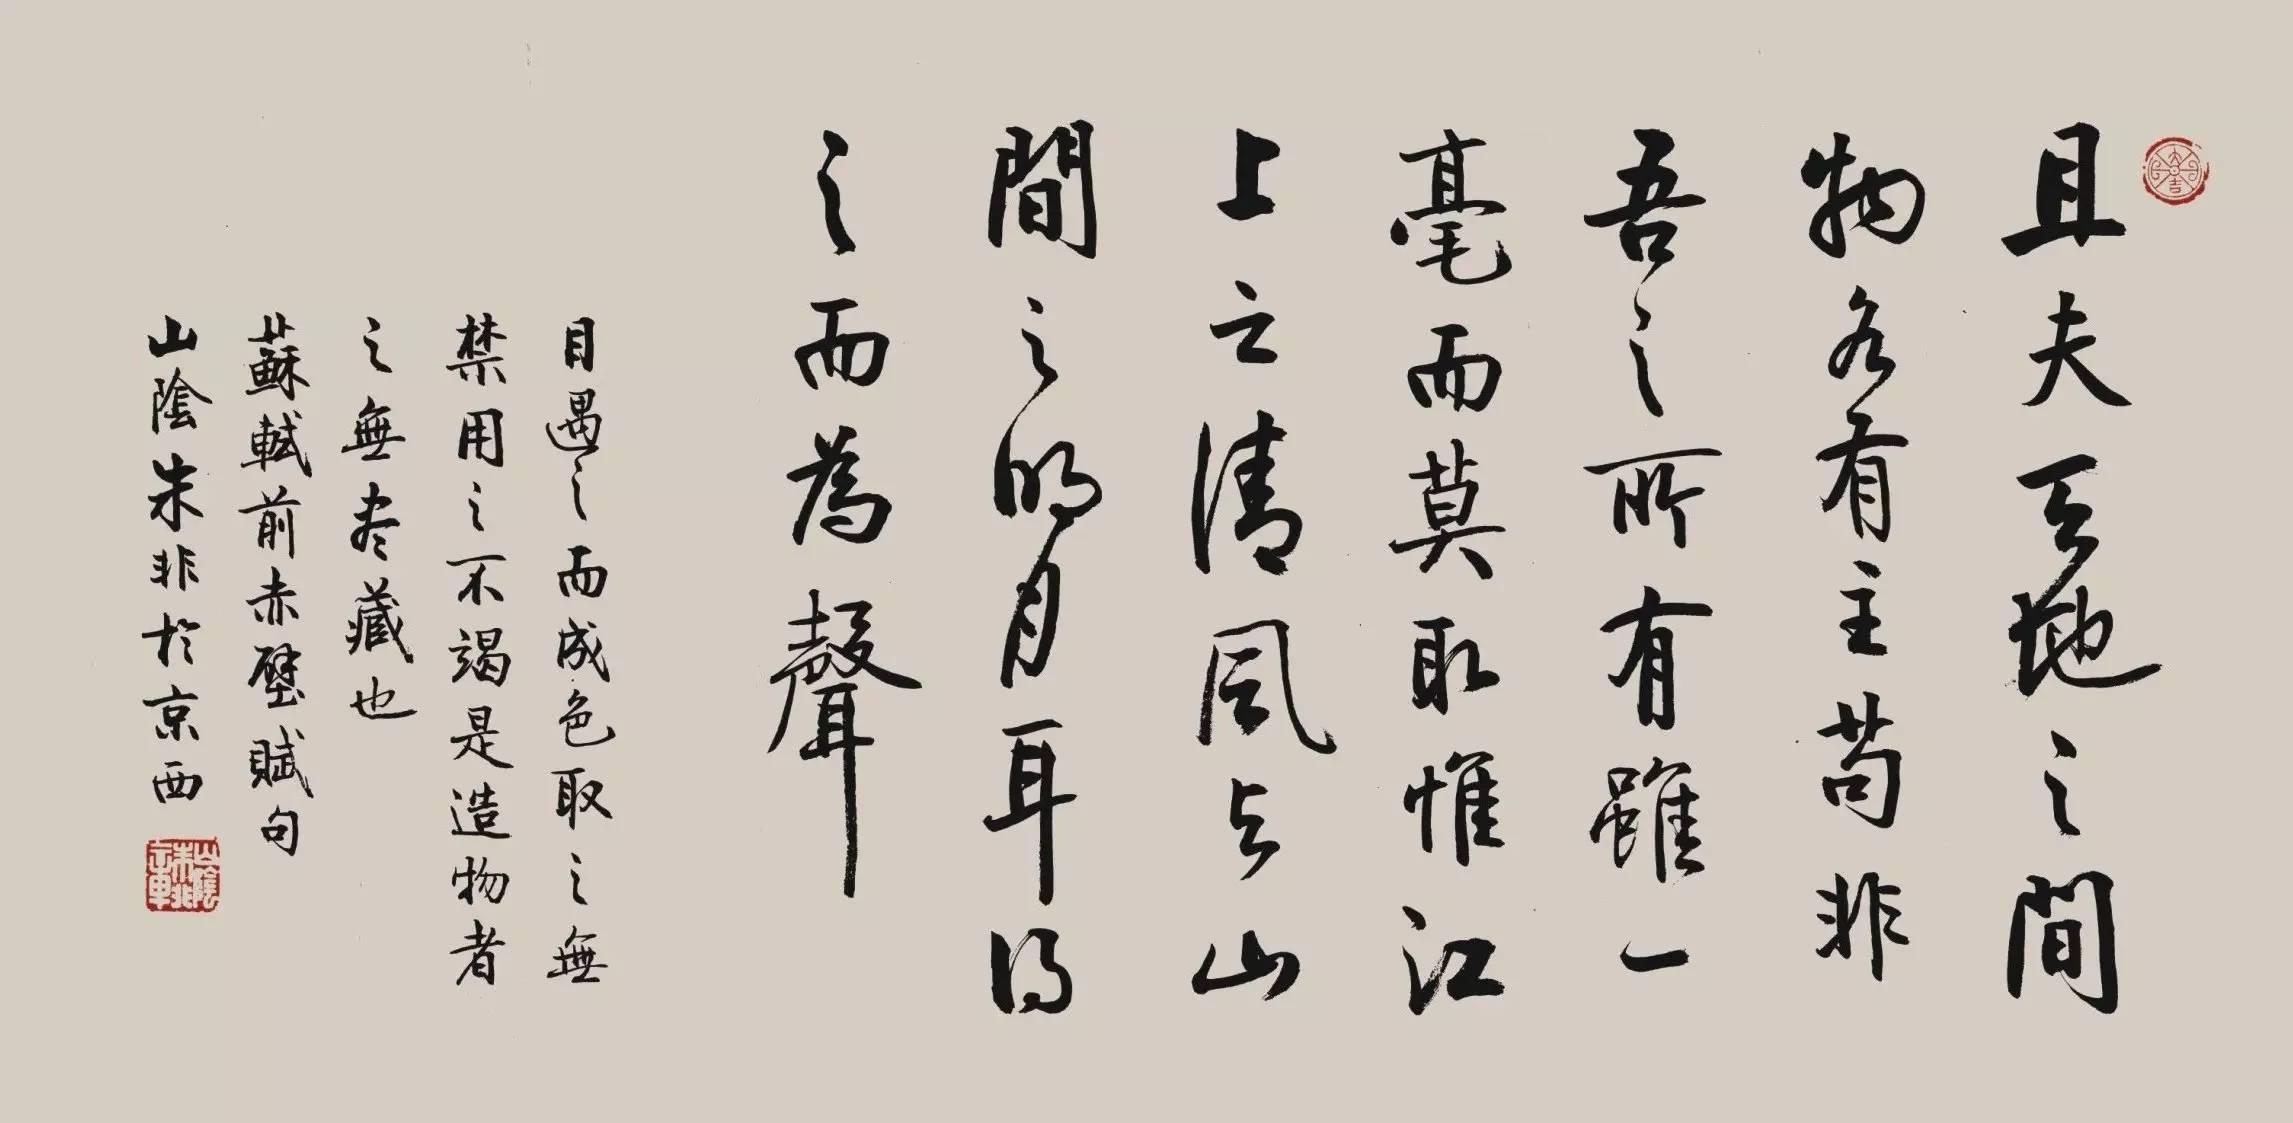 大吉
且夫天地之間
物各有主苟非
吾之所有雖一
毫而莫取惟江
上之清風与山
間之明月耳得
之而為聲
目遇之而成色取之無
禁用之不竭是造物者
之無盡藏也
蘇軾前赤壁賦句
山陰朱非於京西
山陰朱非